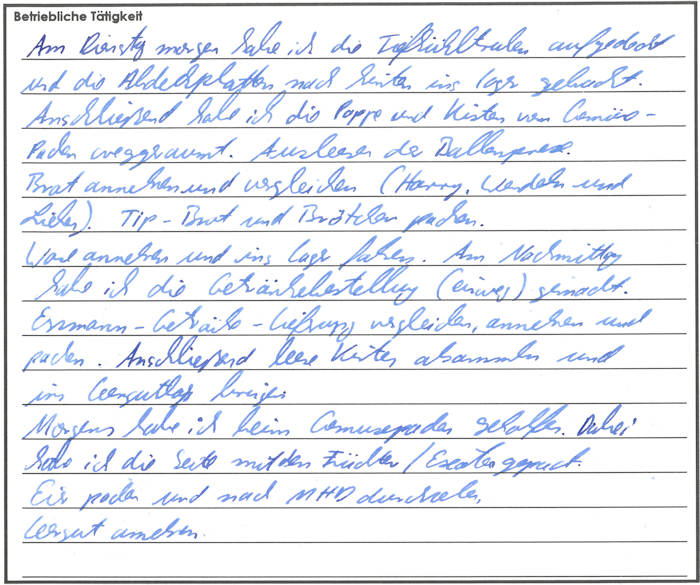 Betriebliche Tätigkeit
Am Dienstag morgen habe ich die Tiefkühltruhen aufgedeckt
und die Abdeckplatten nach hinten ins Lager gebracht.
Anschließend habe ich die Pappe und Kisten vom Gemüse-
Packen weggeräumt. Ausleeren der Ballenpresse.
Brot annehmen und vergleichen (Harry, Wendeln und
Lieken). Tip-Brot und Brötchen packen.
Ware annehmen und ins Lager fahren. Am Nachmittag
habe ich die Getränkebestellung (einweg) gemacht.
Essmann-Getränke-Lieferung vergleichen, annehmen und
packen. Anschließend leere Kisten absammeln und
ins Leergutlager bringen
Morgens habe ich beim Gemüsepacken geholfen. Dabei
habe ich die Seite mit den Früchten/Exoten gepackt.
Eis packen und nach MHD durchsehen,
Leergut annehmen.